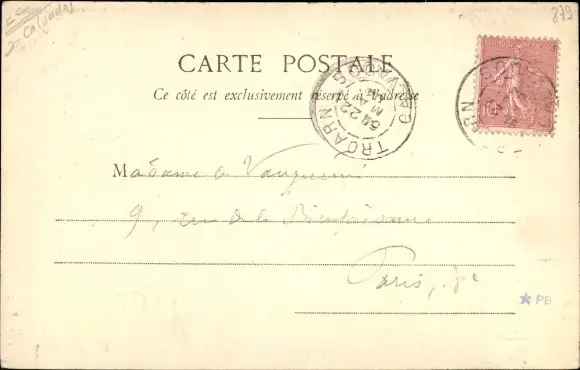 879
CARTE POSTALE
Ce côté est exclusivement réservé à l'adresse
TROARN CALVADOS
22
Madame
9, rue de la Bienfaisance
Paris, 8e
PB